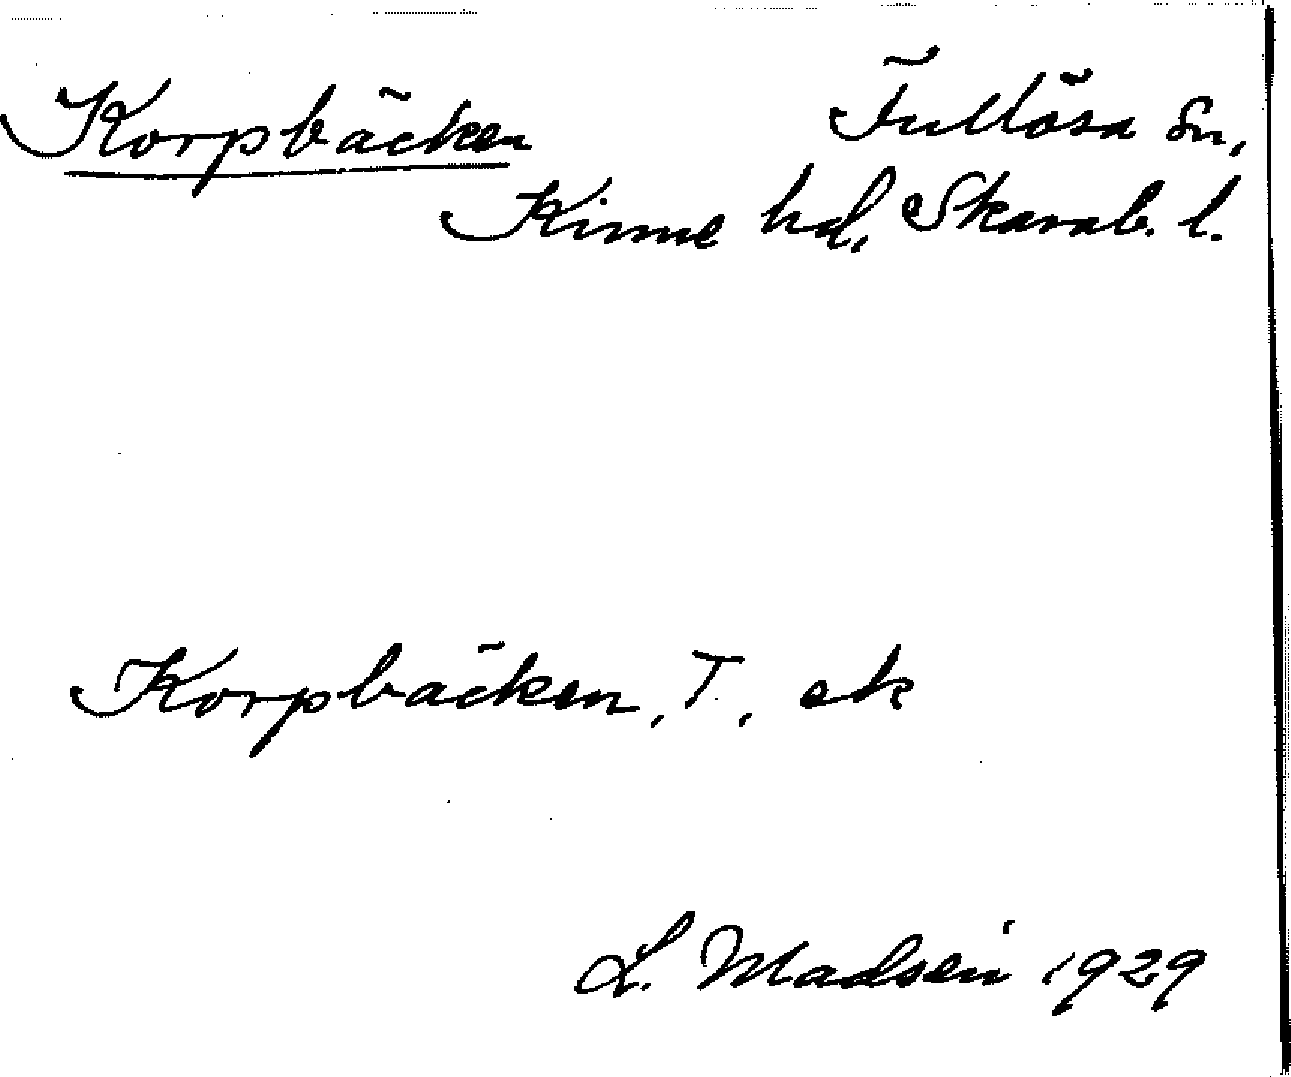 Korpbäcken Fullösa Sn,
Kinne hd, Skarab. l.
Korpbäcken, T, ek
L. Madsén 1929